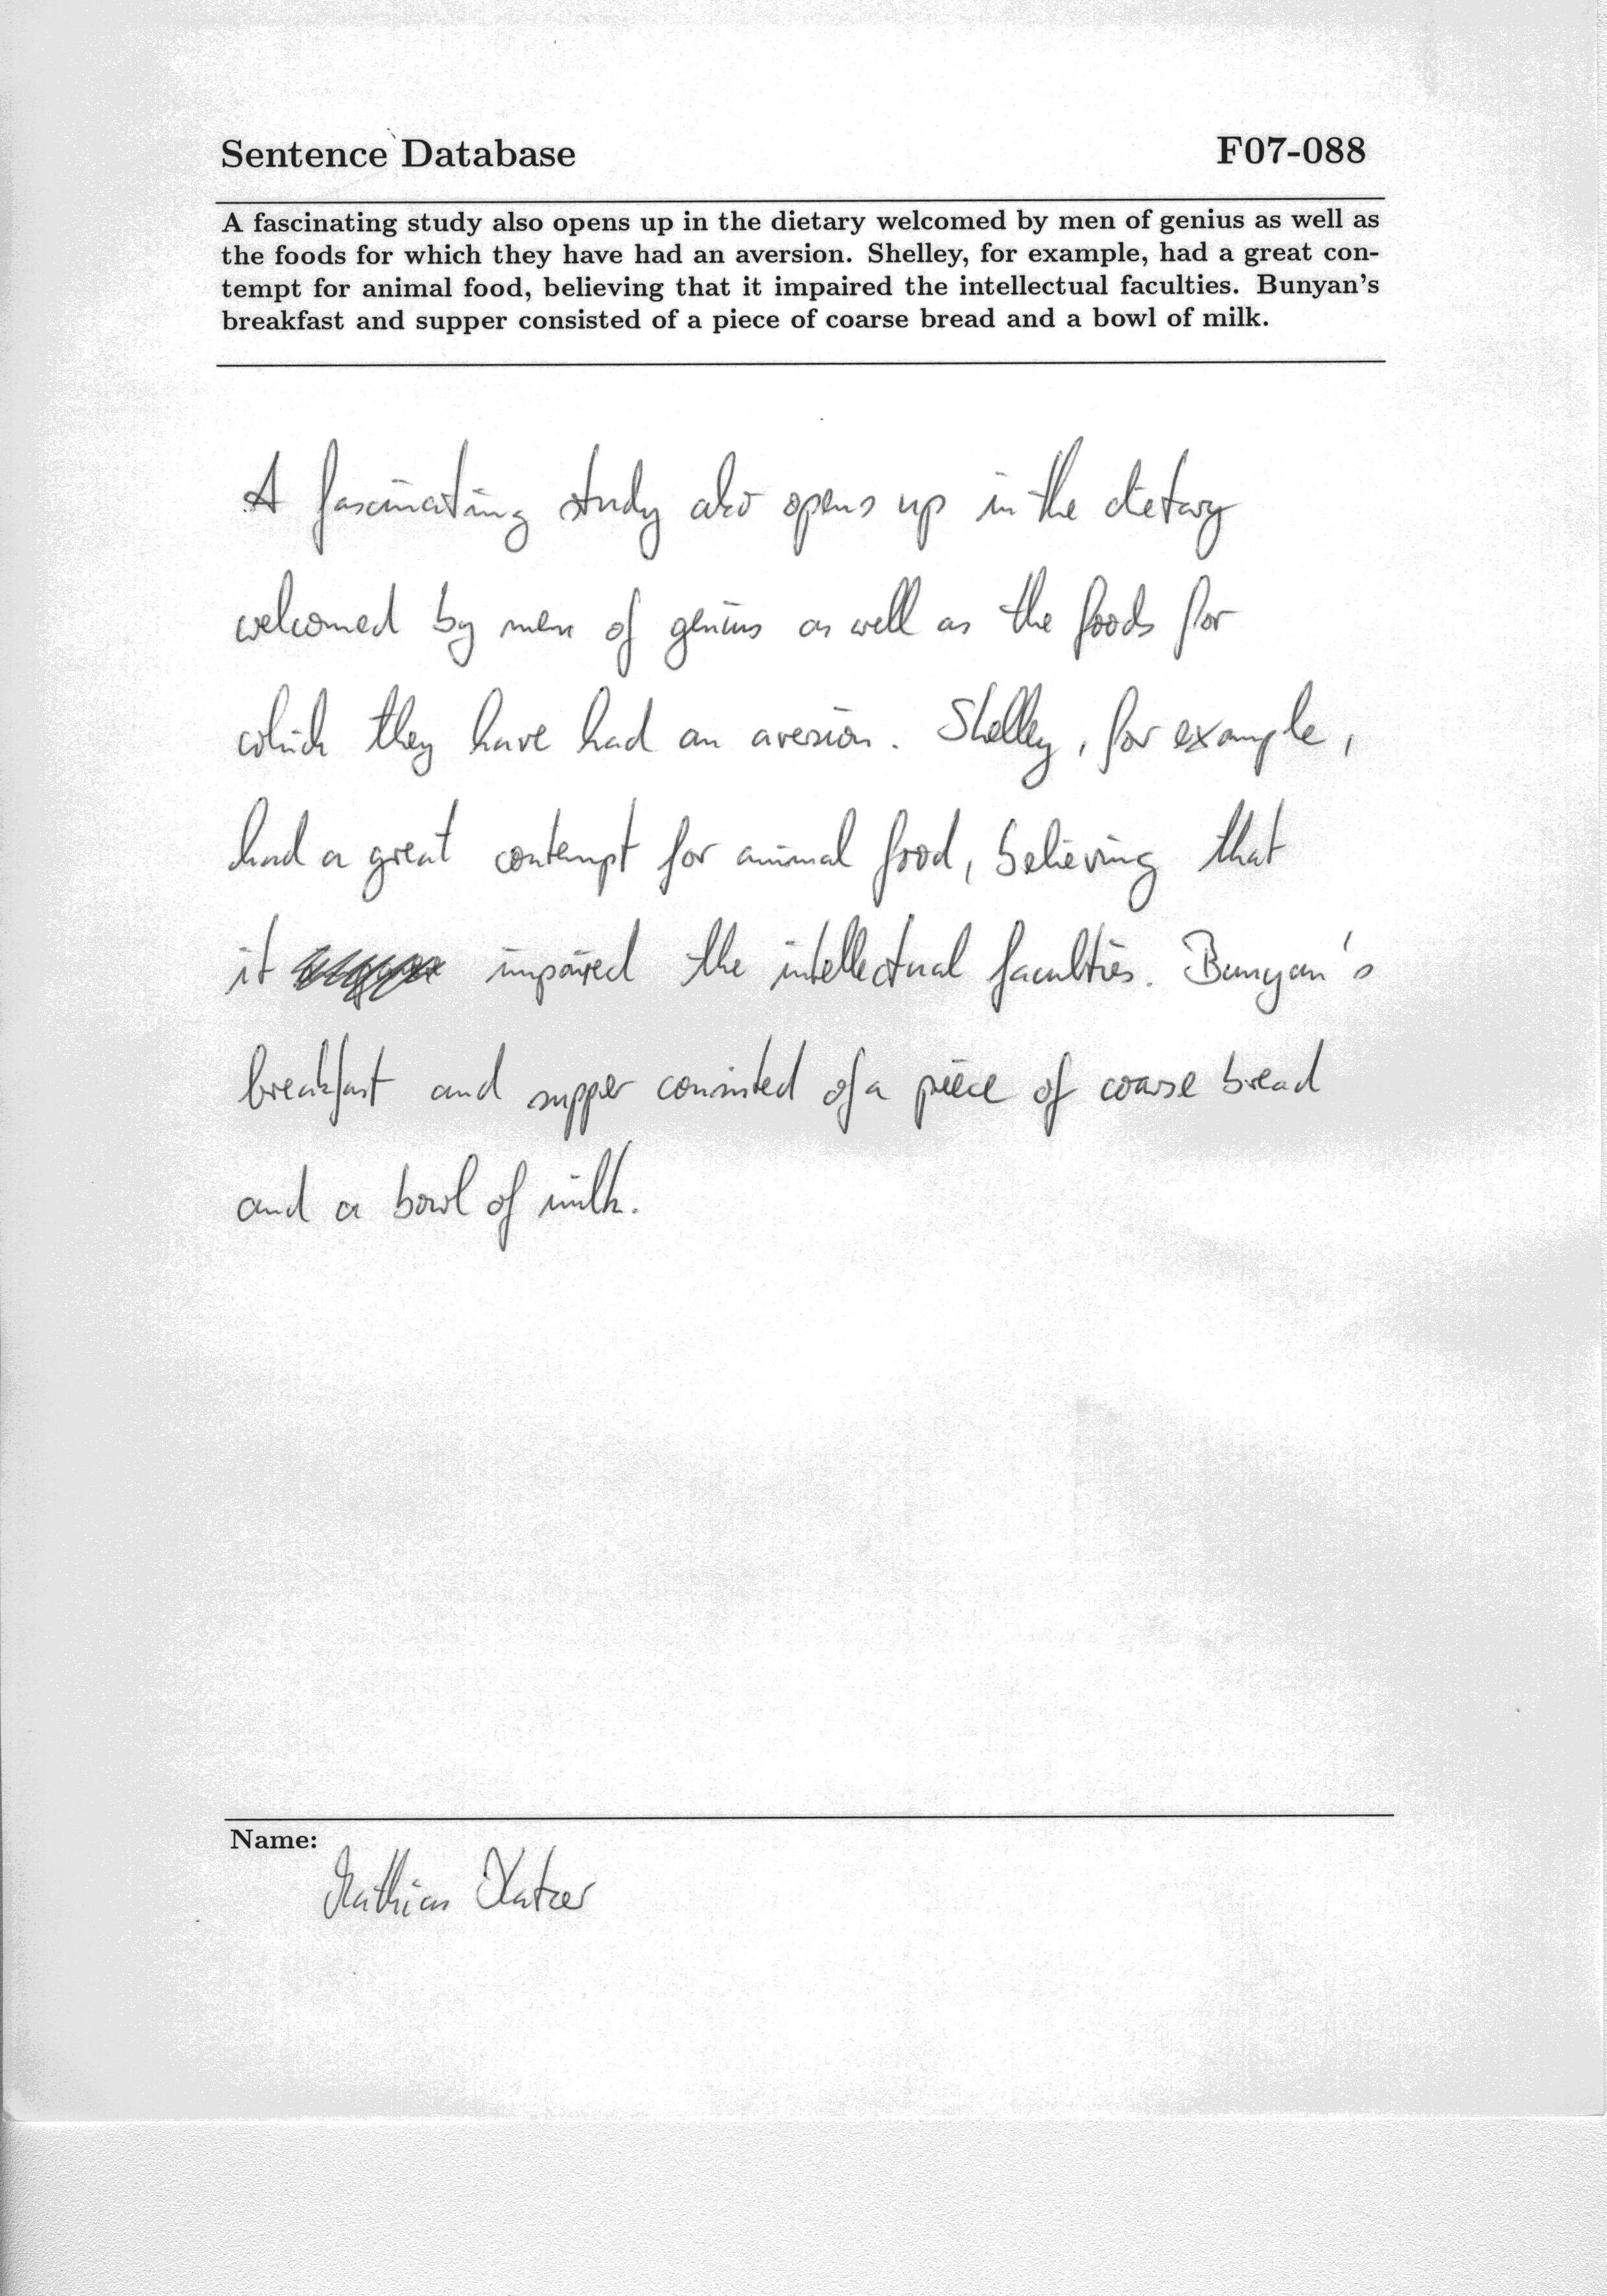 Sentence Database F07-088
A fascinating study also opens up in the dietary welcomed by men of genius as well as
the foods for which they have had an aversion. Shelley, for example, had a great con-
tempt for animal food, believing that it impaired the intellectual faculties. Bunyan's
breakfast and supper consisted of a piece of coarse bread and a bowl of milk.
A fascinating study also opens up in the dietary
welcomed by men of genius as well as the foods for
which they have had an aversion. Shelley, for example,
had a great contempt for animal food, believing that
it impaired the intellectual faculties. Bunyan's
breakfast and supper consisted of a piece of coarse bread
and a bowl of milk.
Name:
Mathias